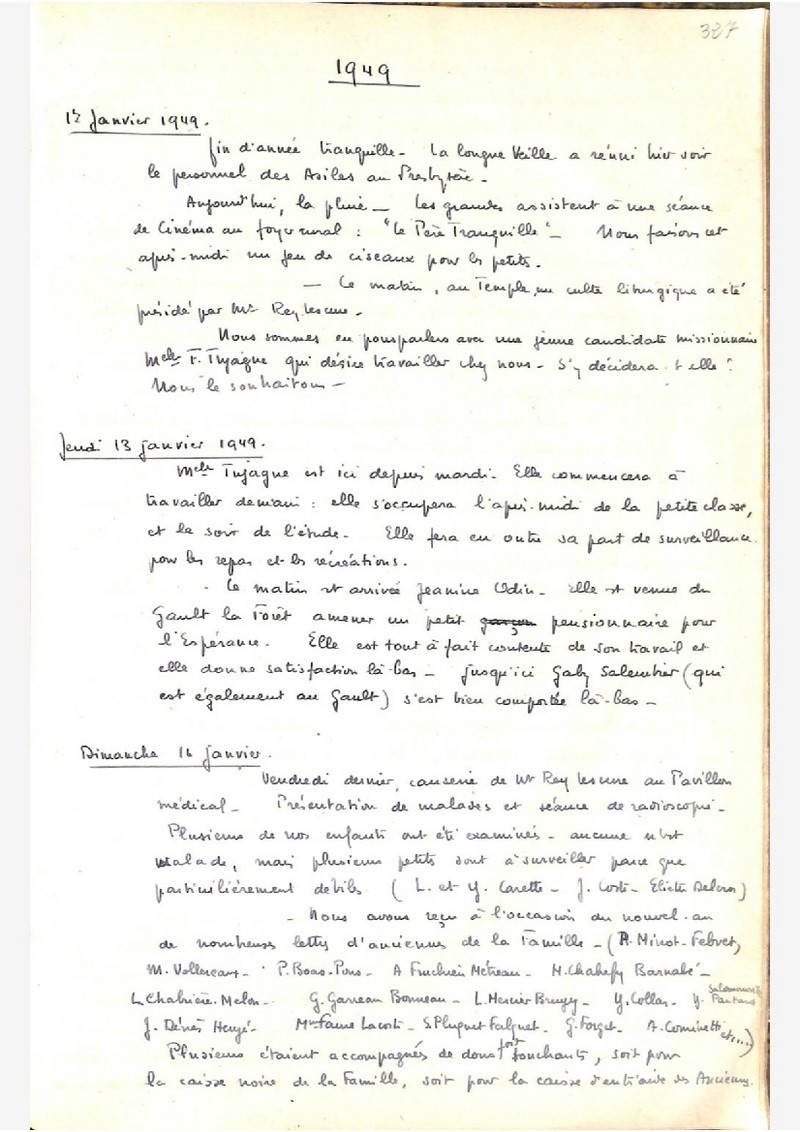 327
1949
1er Janvier 1949.
fin d'année tranquille - La longue Veille a réuni hier soir
le personnel des Asiles au Presbytère -
Aujourd'hui, la pluie - Les grandes assistent à une séance
de Cinéma au foyer rural : "Le Père Tranquille" - Nous faisons cet
après-midi un jeu de ciseaux pour les petits.
- Ce matin, au Temple, un culte liturgique a été
présidé par Mr Rey Lescure -
Nous sommes en pourparlers avec une jeune candidate missionnaire
Melle F. Tujague qui désire travailler chez nous - S'y décidera-t-elle ?
Nous le souhaitons -
Jeudi 13 janvier 1949.
Melle Tujague est ici depuis mardi - Elle commencera à
travailler demain : elle s'occupera l'après-midi de la petite classe,
et le soir de l'étude - Elle fera en outre sa part de surveillance
pour les repas et les récréations.
- Ce matin est arrivée Jeanine Odin - Elle est venue du
Gault la Forêt amener un petit garçon pensionnaire pour
l'Espérance. Elle est tout à fait contente de son travail et
elle donne satisfaction là-bas - Jusqu'ici Gaby Salembier (qui
est également au Gault) s'est bien comportée là-bas -
Dimanche 16 Janvier.
Vendredi dernier, causerie de Mr Rey Lescure au Pavillon
médical - Présentation de malades et séance de radioscopie -
Plusieurs de nos enfants ont été examinés - aucune n'est
malade, mais plusieurs petits sont à surveiller parce que
particulièrement débiles ( L. et Y. Carette - J. Coste - Eliette Delcros )
- Nous avons reçu à l'occasion du nouvel-an
de nombreuses lettres d'anciennes de la Famille - (R. Minot-Febvet,
M. Vollereaux - P. Boas-Pons - A Métreau - M. Barnabé -
L Chabrière-Melon - G. Garreau Bonneau - L. Mercier - Y. Collas - Y.
J. Dénès - Mme Faure Lacoste - G. Forget - A. Cominetti etc...)
Plusieurs étaient accompagnés de dons fort touchants, soit pour
la caisse noire de la Famille, soit pour la caisse d'entr'aide des Anciennes.